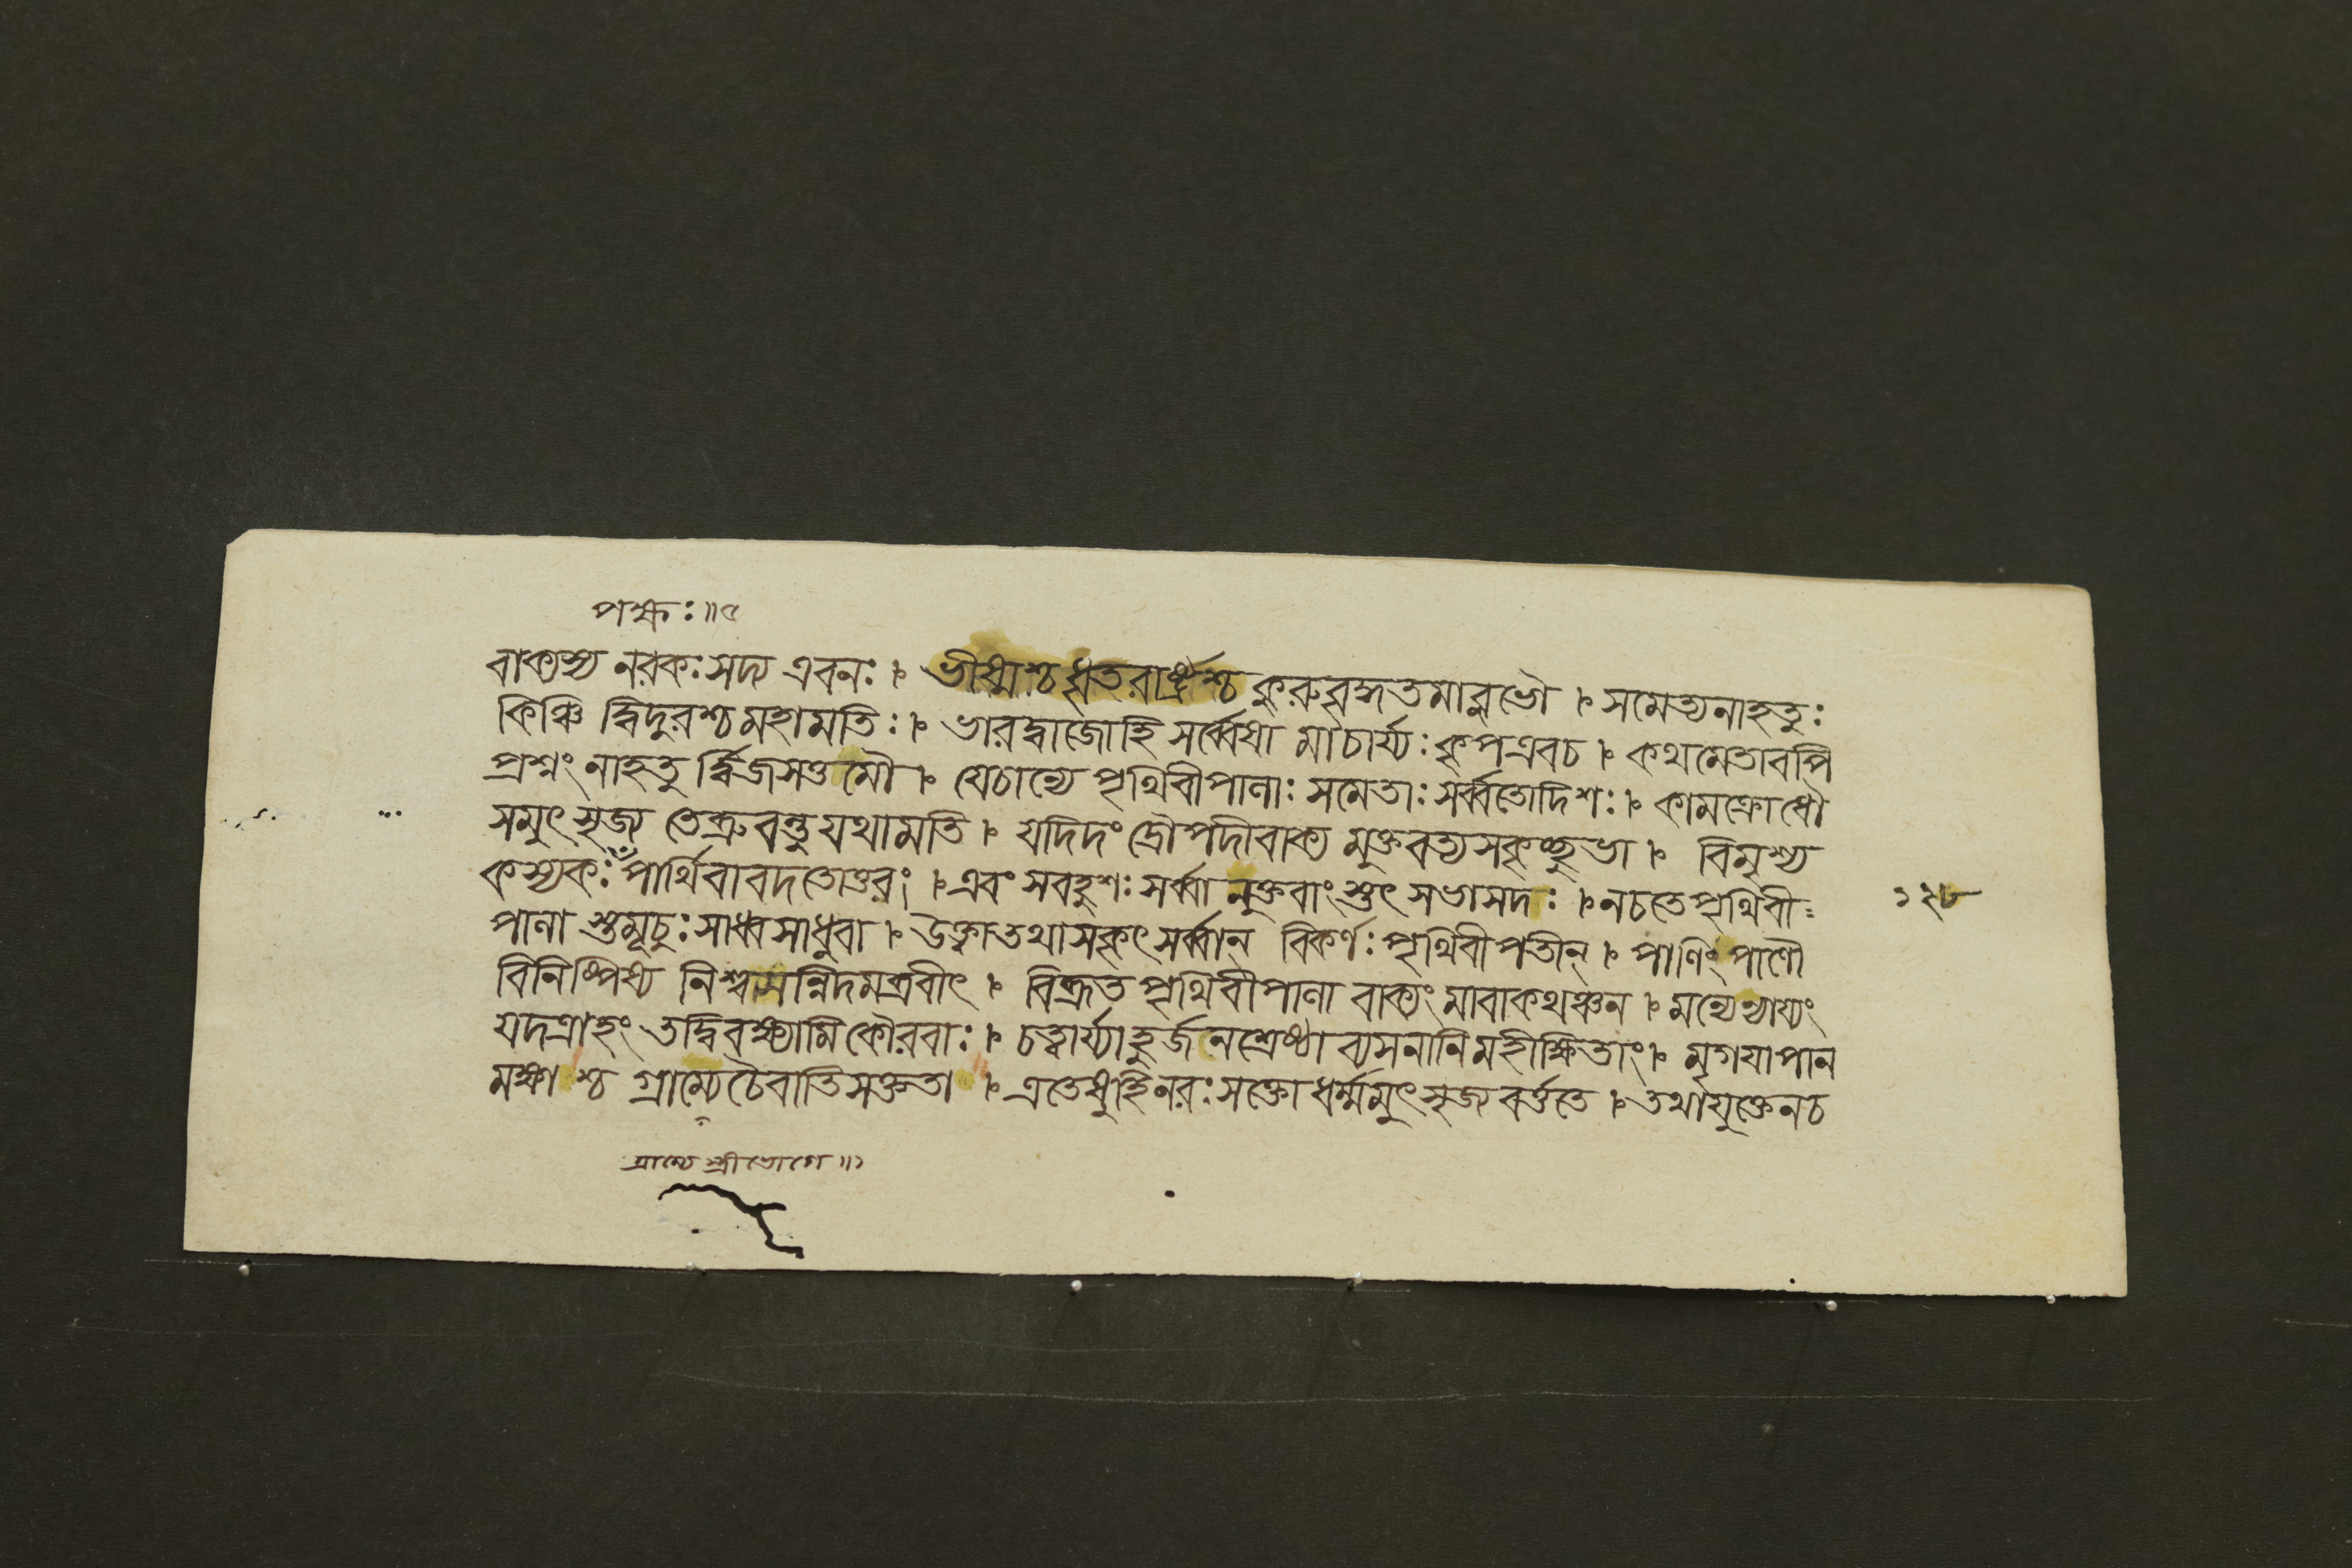 পক্ষঃ॥৫
বাক্যস্য নরকঃসদ্য এবনঃ। ভীষ্মশ্চধৃতরাষ্ট্রশ্চ কুরুবৃদ্ধতমাবুভৌ। সমেত্যনাহতুঃ
কিঞ্চি দ্বিদুরশ্চমহামতিঃ। ভারদ্বাজোহি সর্ব্বেষা মাচার্য্যঃকৃপএবচ। কথমেতাবপি
প্রশ্নং নাহতু র্দ্বিজসত্তমৌ। যেচান্যে পৃথিবীপানাঃ সমেতাঃসর্ব্বতোদিশঃ। কামক্রোধৌ
সমুৎসৃজ্য তেব্রুবন্তুযথামতি। যদিদং দ্রৌপদীবাক্য মুক্তবত্যসকৃচ্ছুভা। বিমৃশ্য
কস্যকঃপার্থিবাবদতোত্তরং। এবং সবহুশঃসর্ব্বা নুক্তবাংস্তুৎ সভাসদঃ। নচতেপৃথিবী
পানা স্তমূচুঃসাধ্বসাধুবা। উক্ত্বাতথাসকৃৎসর্ব্বান্ বিকর্ণঃপৃথিবীপতীন্। পাণিংপাণৌ
বিনিষ্পিষ্য নিশ্বসন্নিদমব্রবীৎ। বিব্রূত পৃথিবীপানা বাক্যংমাবাকথঞ্চন। মন্যেন্যায্যং
যদত্রাহং তদ্বিবক্ষ্যামিকৌরবাঃ। চত্বার্য্যাহুর্জনশ্রেষ্ঠা ব্যসনানিমহীক্ষিতাং। মৃগয়াপান
মক্ষাশ্চ গ্রাম্যেচৈবাতিসক্ততা। এতেষুহিনরঃসক্তো ধর্ম্মমুৎসৃজ্যবর্ত্ততে। তথাযুক্তেনচ
গ্রাম্যে স্ত্রীভোগে॥১
১২৮